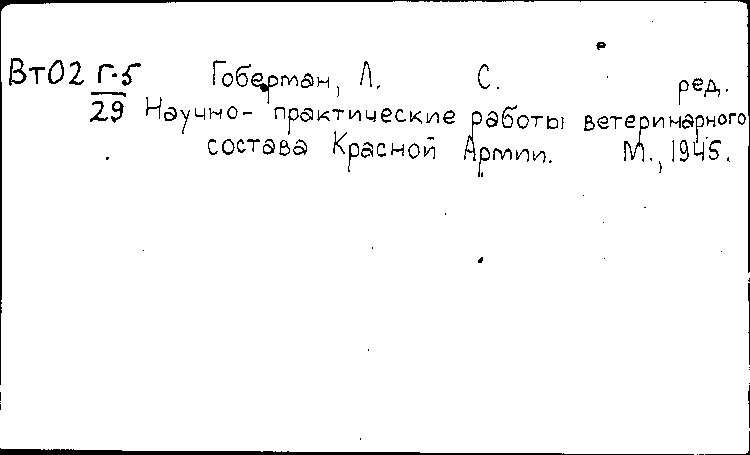 Вт02 Г-5 Гоберман, Л. С. ред.
29 Научно-практические работы ветеринарного
состава Красной Армии. М., 1945.